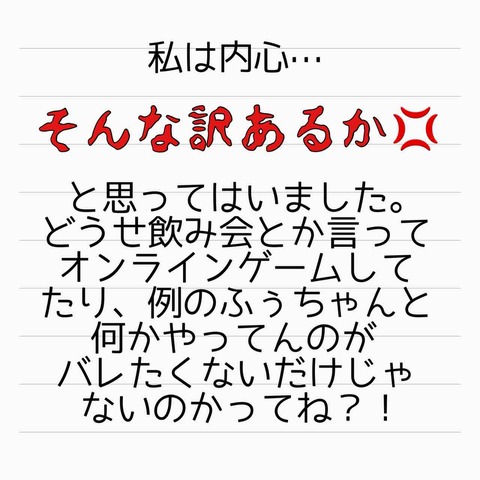 私は内心…
そんな訳あるか💢
と思ってはいました。
どうせ飲み会とか言って
オンラインゲームして
たり、例のふぅちゃんと
何かやってんのが
バレたくないだけじゃ
ないのかってね？！